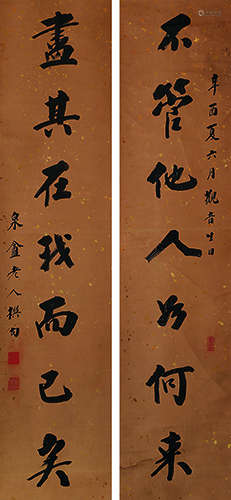 辛酉夏六月觀音生日
不管他人如何來
盡其在我而已矣
泉盦老人撰句